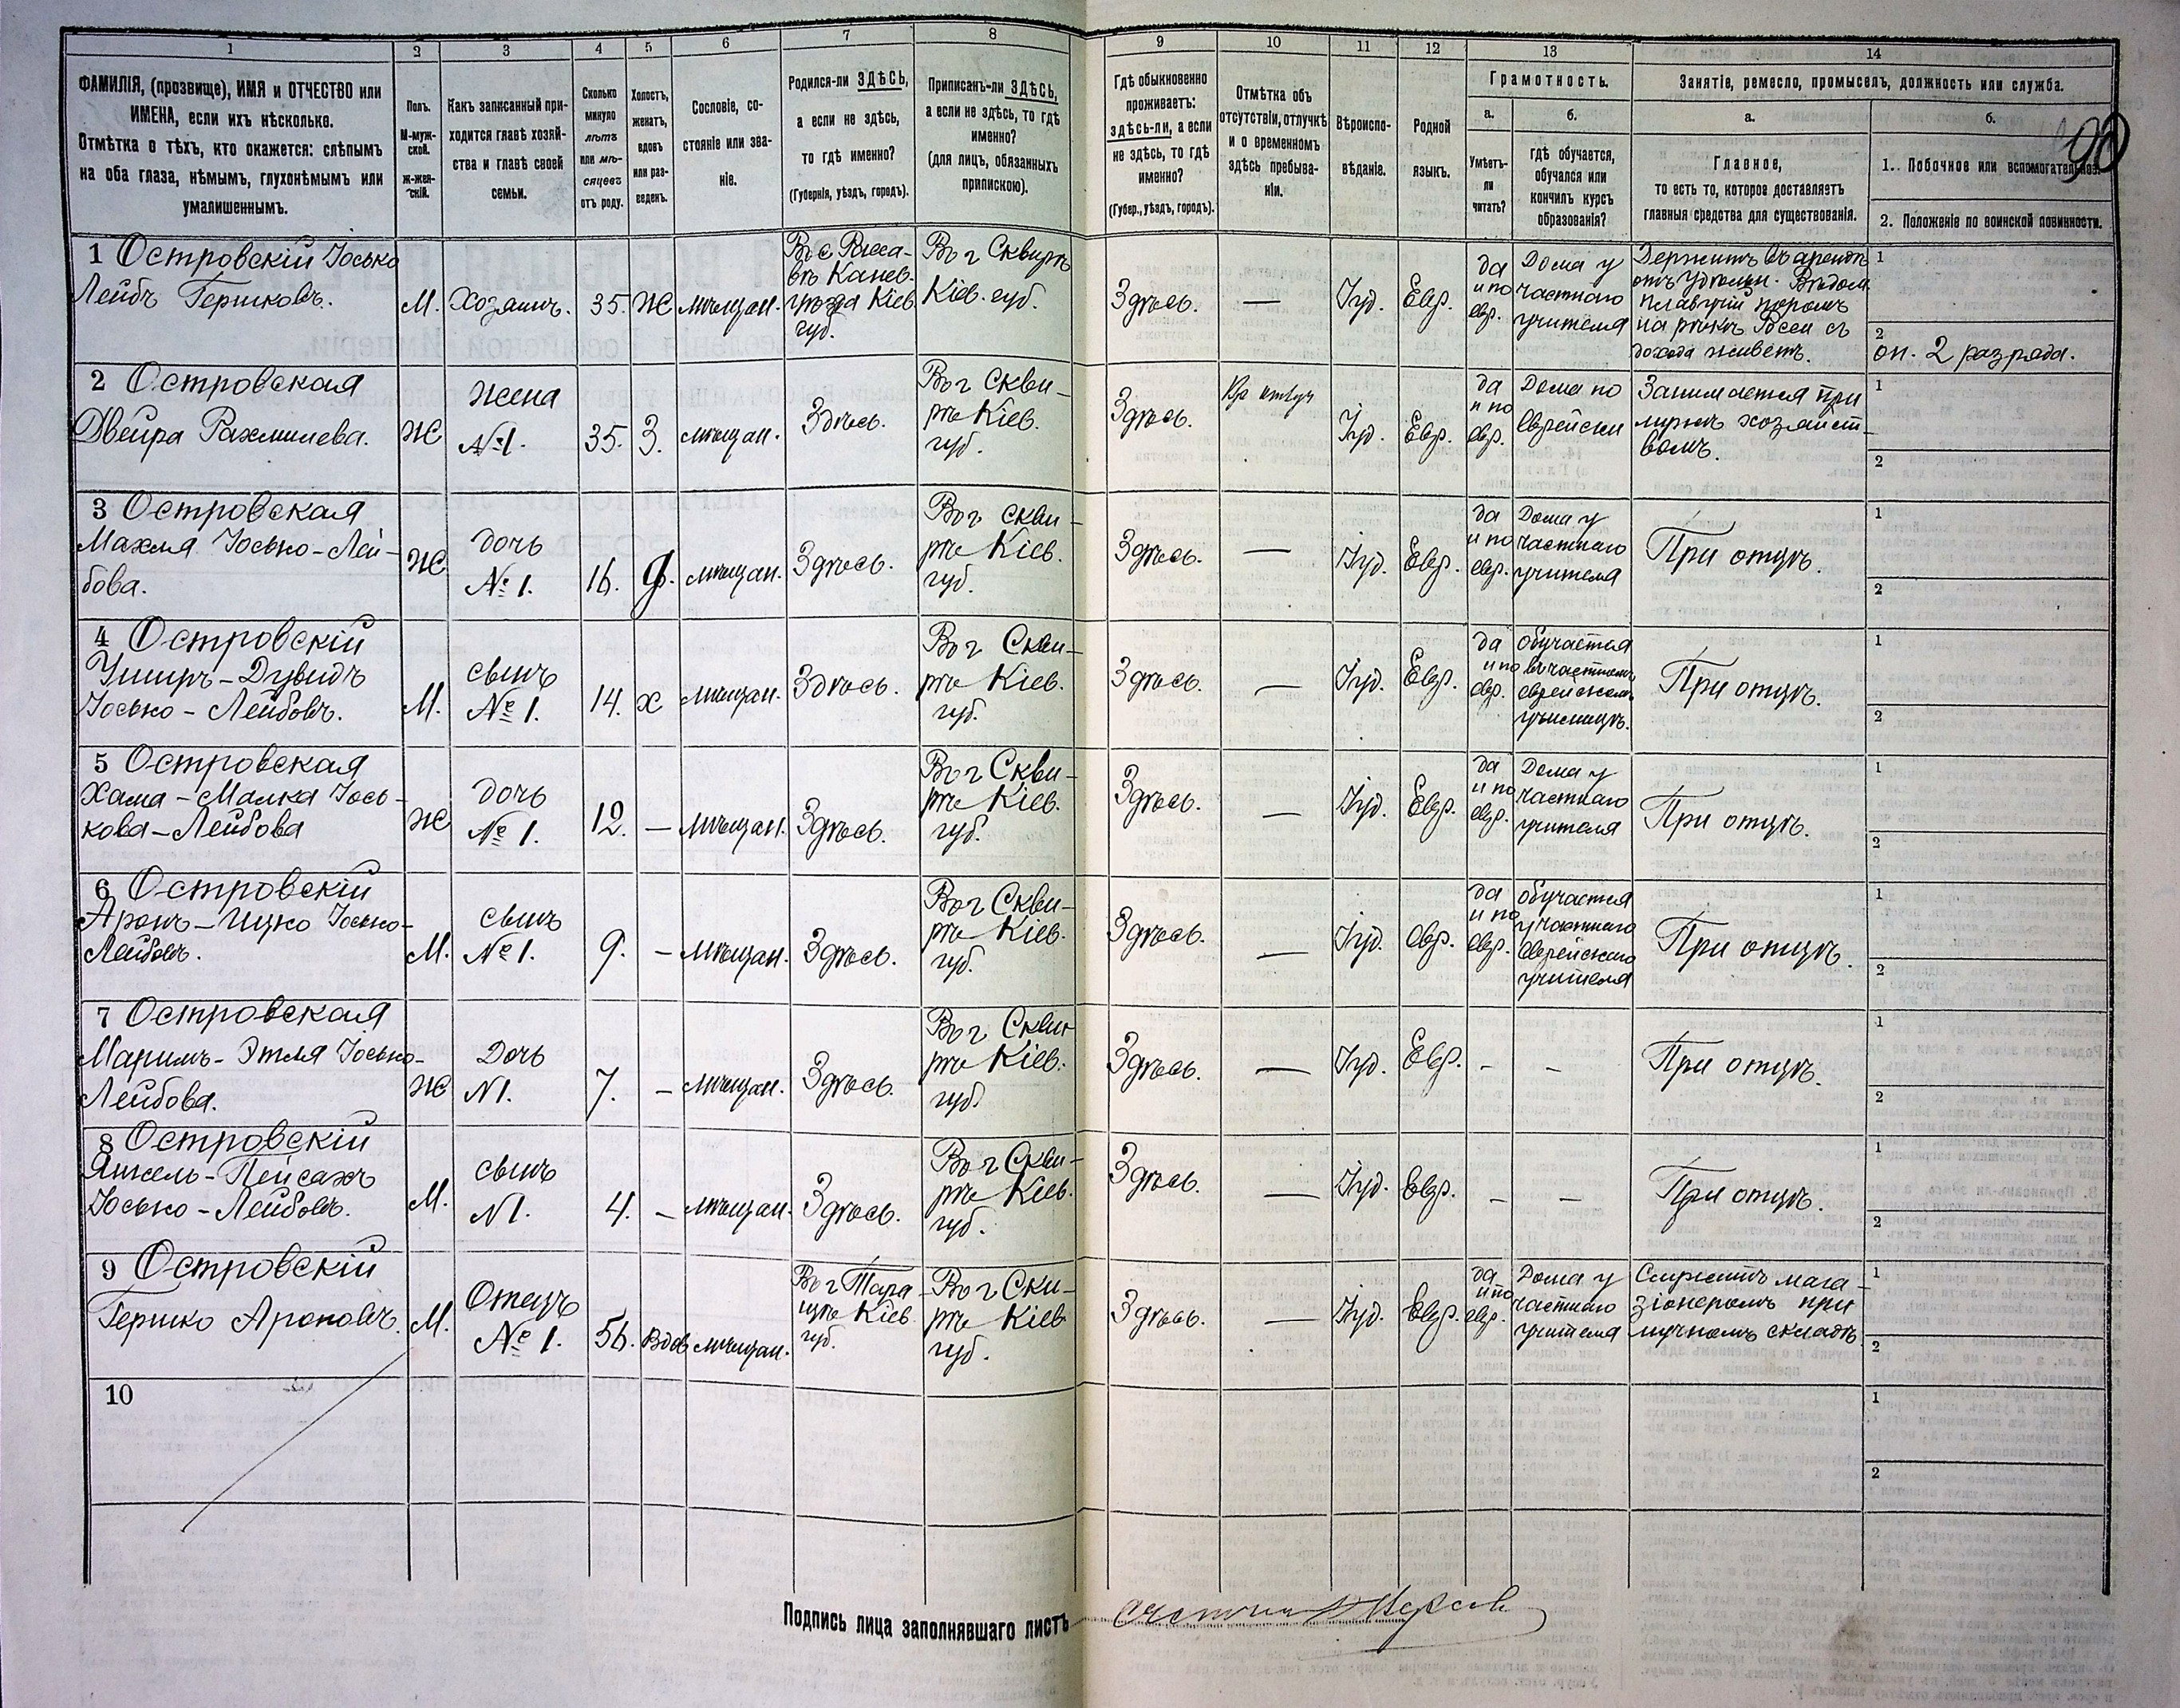 1 2 3 4 5 6 7 8 9 10 11 12 13 14
ФАМИЛІЯ, (прозвище), ИМЯ и ОТЧЕСТВО или
ИМЕНА, если ихъ нѣсколько.
Отмѣтка о тѣхъ, кто окажется: слѣпымъ
на оба глаза, нѣмымъ, глухонѣмымъ или
умалишеннымъ.
Полъ.
М-муж-
ской.
Ж-жен-
скій.
Какъ записанный при-
ходится главѣ хозяй-
ства и главѣ своей
семьи.
Сколько
минуло
лѣтъ
или мѣ-
сяцевъ
отъ роду.
Холостъ,
женатъ,
вдовъ
или раз-
веденъ.
Сословіе, со-
стояніе или зва-
ніе.
Родился-ли ЗДѢСЬ,
а если не здѣсь,
то гдѣ именно?
(Губернія, уѣздъ, городъ).
Приписанъ-ли ЗДѢСЬ,
а если не здѣсь, то гдѣ
именно?
(для лицъ, обязанныхъ
припискою).
Гдѣ обыкновенно
проживаетъ:
здѣсь-ли, а если
не здѣсь, то гдѣ
именно?
(Губер., уѣздъ, городъ).
Отмѣтка объ
отсутствіи, отлучкѣ
и о временномъ
здѣсь пребыва-
ніи.
Вѣроиспо-
вѣданіе.
Родной
языкъ.
Грамотность.
а.
Умѣетъ-
ли
читать?
б.
гдѣ обучается,
обучался или
кончилъ курсъ
образованія?
Занятіе, ремесло, промыселъ, должность или служба.
а.
Главное,
то есть то, которое доставляетъ
главныя средства для существованія.
б.
1. Побочное или вспомогательное.
2. Положеніе по воинской повинности.
90
1 Островскій Іосько
Лейбъ Гершковъ.
М.
Хозяинъ.
35.
Ж
мѣщан.
Въ с Росса-
вѣ Канев.
уѣзда Кіев
губ.
Во г Сквирѣ
Кіев. губ.
Здѣсь.
—
Іуд.
Евр.
да
и по
евр.
Дома у
частнаго
учителя
Держитъ въ арендѣ
отъ Удѣльн. Вѣдом.
плавучій поромъ
на рѣкѣ Росси съ
дохода живетъ.
1
2
оп. 2 разряда.
2 Островская
Двейра Рахмилева.
Ж
жена
№1.
35.
З.
мѣщан.
Здѣсь.
Во г Скви-
рѣ Кіев.
губ.
Здѣсь.
Іуд.
Евр.
да
и по
евр.
Дома по
Еврейски
Занимается при
мужѣ хозяйст-
вомъ.
1
2
3 Островская
Махля Іосько-Лей-
бова.
Ж
дочь
№ 1.
16.
д.
мѣщан.
Здѣсь.
Во г Скви-
рѣ Кіев.
губ.
Здѣсь.
—
Іуд.
Евр.
да
и по
евр.
Дома у
частнаго
учителя
При отцѣ.
1
2
4 Островскій
Уширъ-Дувидъ
Іосько-Лейбовъ.
М.
сынъ
№ 1.
14.
х
мѣщан.
Здѣсь.
Во г Скви-
рѣ Кіев.
губ.
Здѣсь.
—
Іуд.
Евр.
да
и по
евр.
обучается
въ частномъ
еврейском
училищѣ.
При отцѣ.
1
2
5 Островская
Хана-Малка Іось-
кова-Лейбова
Ж
дочь
№ 1.
12.
—
Мѣщан.
Здѣсь.
Во г Скви-
рѣ Кіев.
губ.
Здѣсь.
—
Іуд.
Евр.
да
и по
евр.
Дома у
частнаго
учителя
При отцѣ.
1
2
6 Островскій
Аронъ-Ицко Іосько-
Лейбовъ.
М.
сынъ
№ 1.
9.
—
Мѣщан.
Здѣсь.
Во г Скви-
рѣ Кіев.
губ.
Здѣсь.
—
Іуд.
евр.
да
и по
евр.
обучается
у частнаго
еврейскаго
учителя
При отцѣ.
1
2
7 Островская
Маримъ-Этля Іосько-
Лейбова.
Ж
Дочь
№1.
7.
—
Мѣщан.
Здѣсь.
Во г Скви-
рѣ Кіев.
губ.
Здѣсь.
—
Іуд.
Евр.
—
—
При отцѣ.
1
2
8 Островскій
Янкель-Пейсахъ
Іосько-Лейбовъ.
М.
сынъ
№1.
4.
—
мѣщан.
Здѣсь.
Во г Скви-
рѣ Кіев.
губ.
Здѣсь.
—
Іуд.
Евр.
—
—
При отцѣ.
1
2
9 Островскій
Гершко Ароновъ.
М.
Отецъ
№ 1.
56.
Вдов
мѣщан.
Во г Тара
щѣ Кіев.
губ.
Во г Скви-
рѣ Кіев
губ.
Здѣсь.
—
Іуд.
Евр.
да
и по
евр.
Дома у
частнаго
учителя
Служитъ мага-
зіонеромъ при
мучномъ складѣ
1
2
10
1
2
Подпись лица заполнявшаго листъ